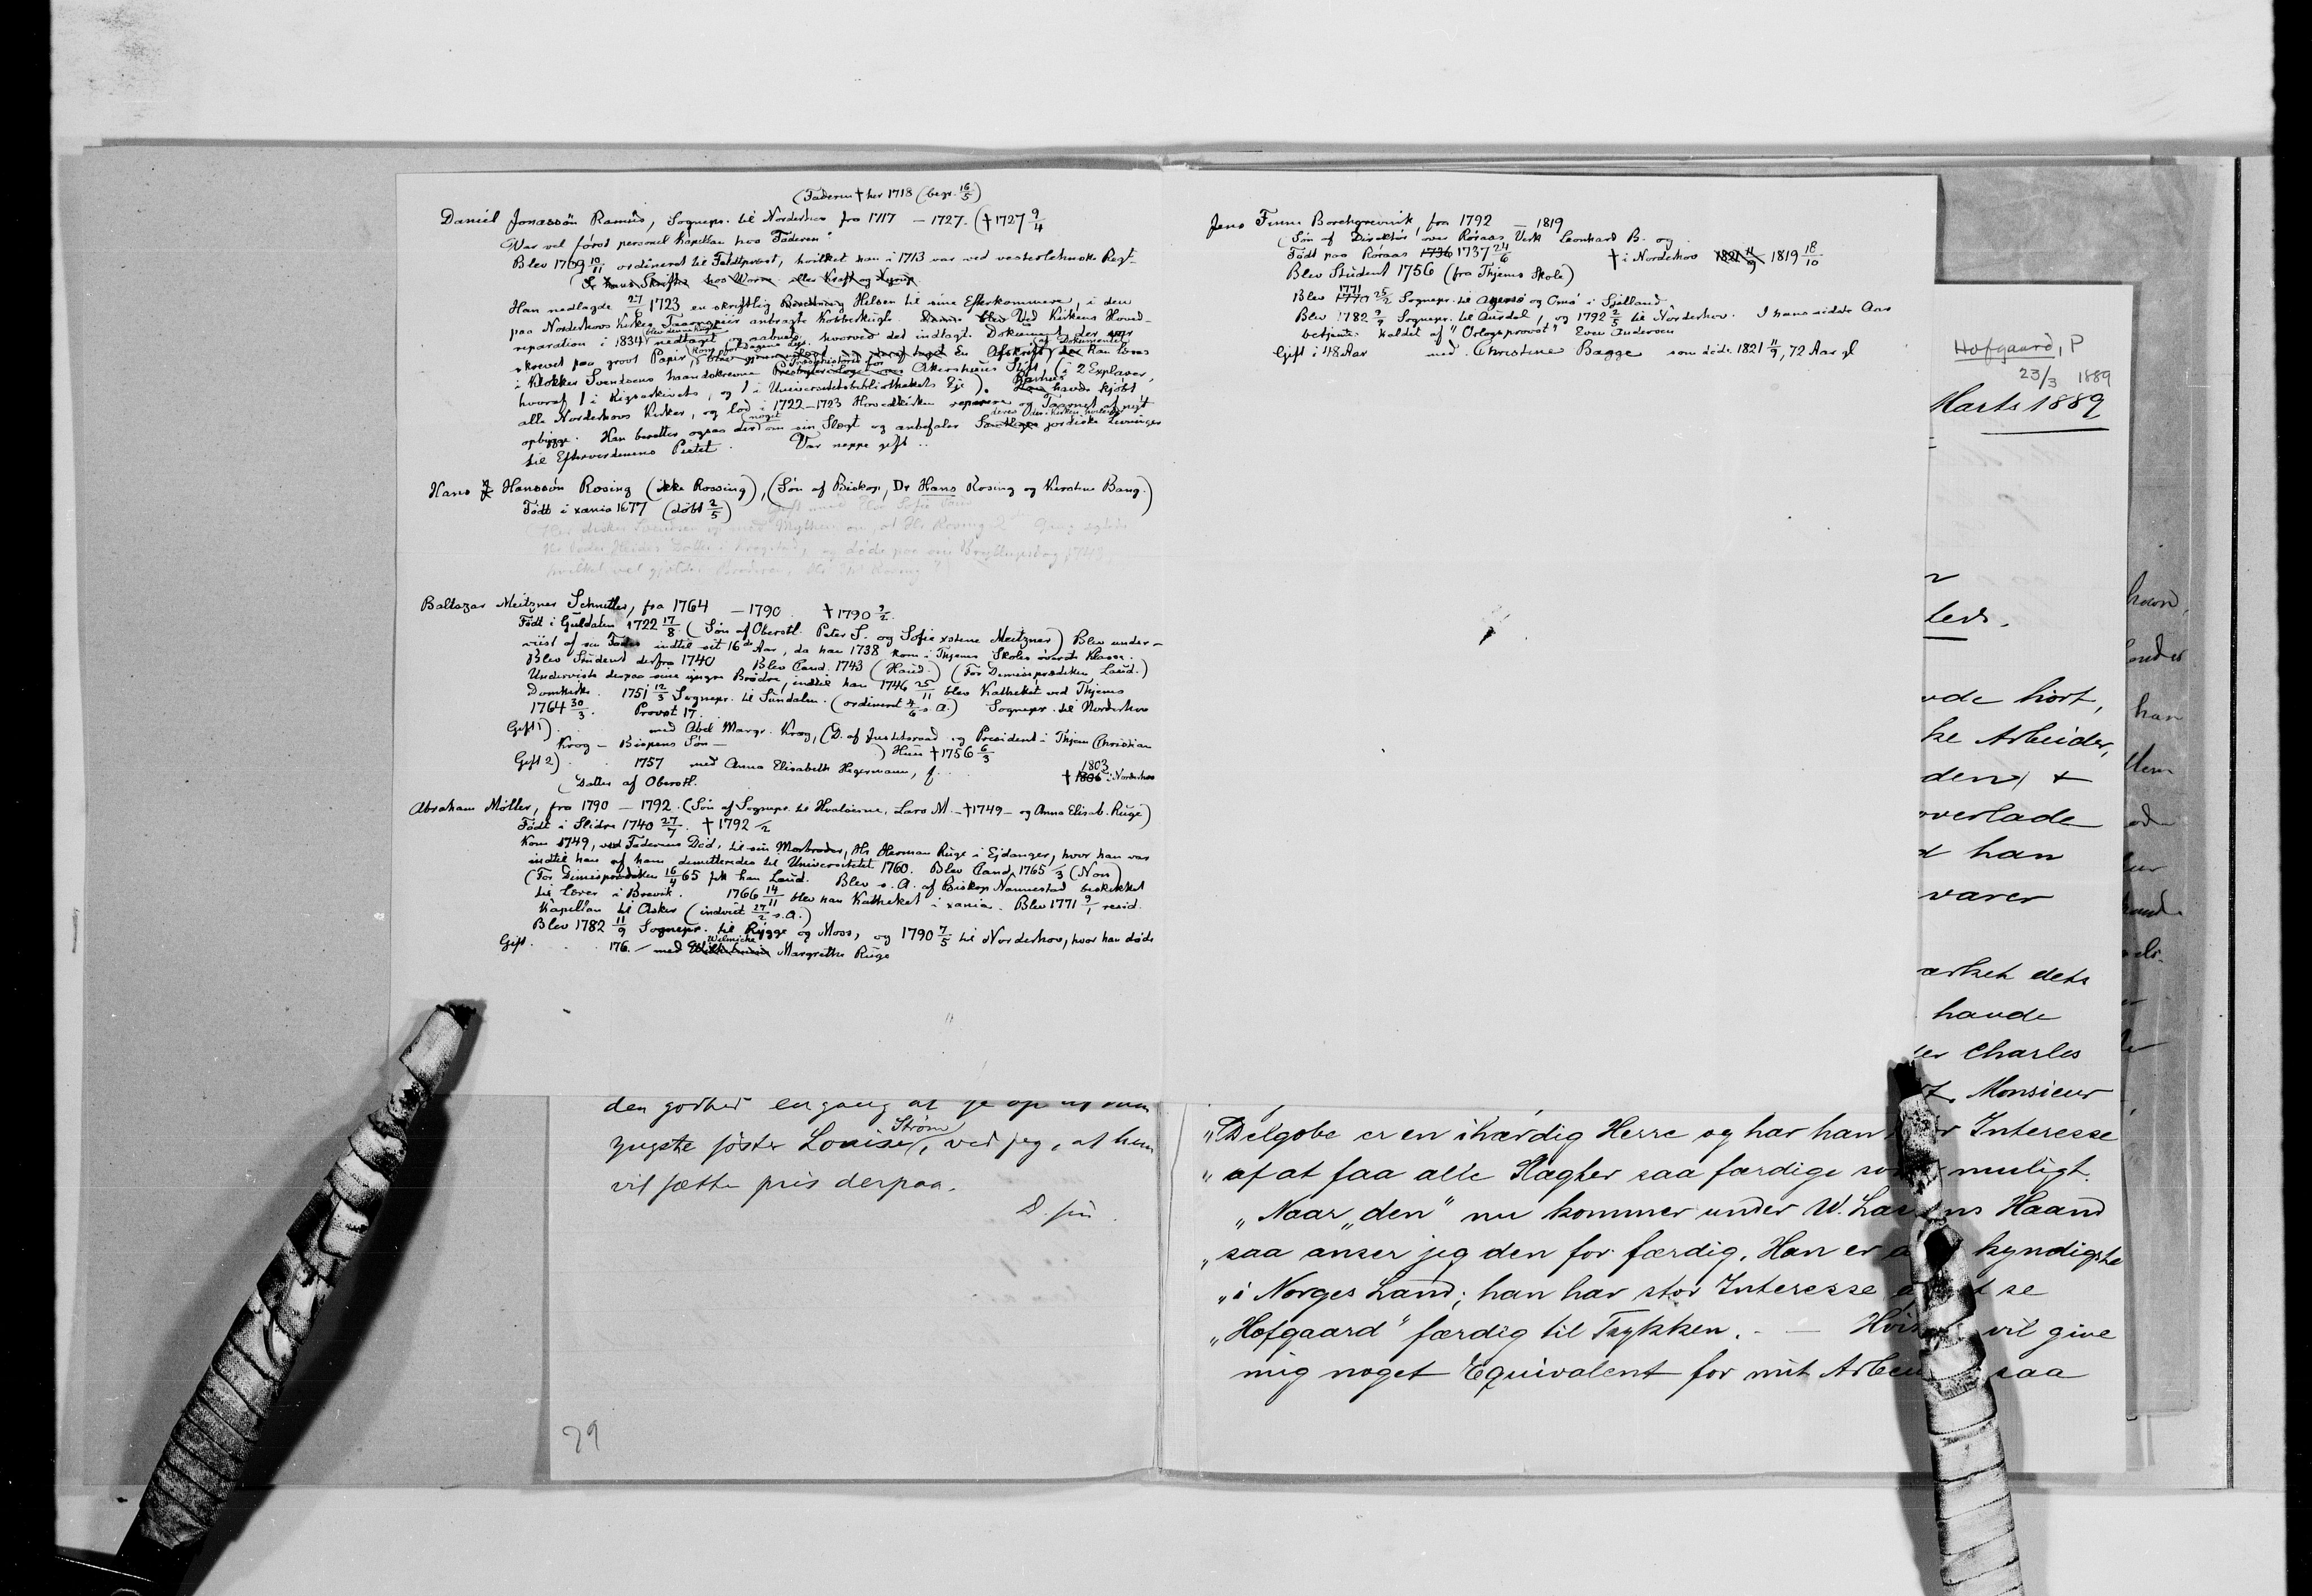 (Faderen † her 1718 (begr. 16/5)
Daniel Jonassön Ramus, Sognepr. til Norderhov fra 1717 — 1727. († 1727 9/4
Var vel först personel Kapellan hos Faderen
Blev 1709 10/11 ordineret til Feldtpræst, hvilket han i 1713 var ved vesterlehnske Regt.
Er hans Skrifter hos Worm eller Kraft og Nyerup
Han nedlagde 27/6 1723 en skriftlig Hilsen til sine Efterkommere, i den
paa Norderhovs Kirkes Taarnspiir anbragte Kobberkugle. Ved Kirkens Hoved-
reparation i 1834 blev denne Kugle nedtaget og aabnet, hvorved det indlagte Dokument, der var
skrevet paa grovt Papir, En Afskrift af Dokumentet kan læses
i Klokker Svendsens haandskrevne Præstehistorie for Akershuus Stift, (i 2 Explarer,
hvoraf 1 i Rigsarkivets, og 1 i Universitetsbibliothekets Eje). Ramus havde kjöbt
alle Norderhovs Kirker, og lod i 1722—1723 Hovedkirken reparere og Taarnet af nyt
opbygge. Han beretter ogsaa der noget om sin Slægt og anbefaler deres jordiske Levninger
til Efterverdenens Pietet. Var neppe gift ..
Hans Hanssön Rosing (ikke Rossing), (Sön af Biskop, Dr Hans Rosing og Kirstine Bang.)
Födt i xania 1677 (döbt 2/5)
Baltazar Meitzner Schnitler, fra 1764 — 1790 † 1790 9/2
Födt i Guldalen 1722 17/8 (Sön af Oberstl. Peter S. og Sofie xstene Meitzner) Blev under-
viist af sin Fader indtil sit 16de Aar, da han 1738 kom i Thjems Skoles överste Klasse.
Blev Student derfra 1740 Blev Cand. 1743 (Haud.) (For Dimisprædiken Laud.)
Underviste derpaa sine yngre Brödre, indtil han 1746 25/11 blev Katheket ved Thjems
Domkirke. 1751 12/3 Sognepr. til Sundalen. (ordineret 4/6 s. A.) Sognepr. til Norderhov
1764 30/3. Provst 17..
Gift 1) med Abel Margr. Krog, (D. af Justitsraad og President i Thjem Christian
Krog — Bispens Sön — ) Hun † 1756 6/3
Gift 2) 1757 med Anna Elisabeth Hegermann, f. † 1806 1803 i Norderhov
(Datter af Oberstl.
Abraham Möller, fra 1790 — 1792. (Sön af Sognepr. til Hvalöerne, Lars M. — † 1749 — og Anna Elisab. Ruge)
Födt i Slidre 1740 27/7. † 1792 /2
Kom 1749, ved Faderens Död, til sin Morbroder, Hr Herman Ruge i Ejdanger, hvor han var
indtil han af ham demitteredes til Universitetet 1760. Blev Cand. 1765 1/3 (Non)
(For Dimisprædiken 16/4 65 fik han Laud. Blev s. A. af Biskop Nannestad beskikket
til Lærer i Brevik. 1766 14/11 blev han Katheket i xania. Blev 1771 9/1 resid.
Kapellan til Asker (indviet 27/2 s. A.)
Blev 1782 11/9 Sognepr. til Rygge og Moss, og 1790 7/5 til Norderhov, hvor han döde
Gift 176. med Wilhelmine Wilmiche Margrethe Ruge
Jens Finne Borchgrevink, fra 1792 — 1819
(Sön af Direktör over Röraas Verk Leonhard B. og
Födt paa Röraas 1736 1737 24/6 † i Norderhov 1821 11/9 1819 18/10
Blev Student 1756 (fra Thjems Skole)
Blev 1770 1771 25/2 Sognepr. til Agersö og Omö i Sjælland
Blev 1782 9/9 Sognepr. til Aurdal, og 1792 2/5 til Norderhov. I hans sidste Aar
betjente Kaldet af "Orlogsprovst" Even Andersen
Gift i 48 Aar med Christine Bagge som döde 1821 11/9, 72 Aar gl
Hofgaard, P
23/3 1889
Marts 1889
ode hört,
ke Arbeider,
den) +
overlade
d han
varer
ærket dets
havde
Charles
Monsieur
havd,
han
den godhed engang at
yngste söster Louise Ström, ved jeg, at hun
vil sætte pris derpaa.
29
"Delgobe er en ihærdig Herre og har han Interesse
"af at faa alle Slægter saa færdige som muligt.
"Naar „den" nu kommer under W. Haand
"saa anser jeg den for færdig. Han er kyndigste
"i Norges Land; han har stor Interesse se
"Hofgaard" færdig til Trykken. — vil give
mig noget Equivalent for mit saa